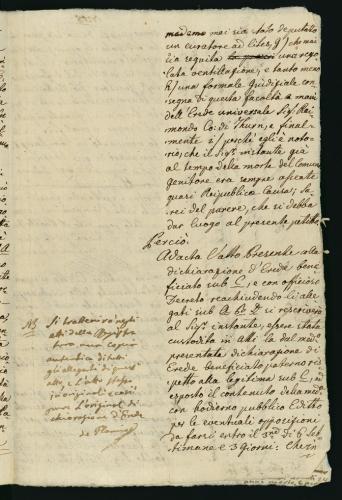 medemo mai sia stato deputato
un curatore ad lites, g/ che mai
sia seguita una rego
lata ventillazione, e tanto meno
h/ una formale Giudiziale con
segna di questa facoltà a mani
dell'Erede universale Sigr. Rai
mondo Co: di Thurn, e final
mente i/ perchè egli è noto
rio, che il Sigr. instante già
al tempo della morte del Comun
genitore era sempre assente
quasi Reipublica Causa; Sa
rei del parere, che si debba
dar luogo al presente petitto
Perciò.
Adacta l'atto Presente colla
dichiarazione d'Erede bene
ficiato sub C, e con officioso
Decreto reachiudendo li alle
gati sub A. B. D. si rescriva
al Sigr. instante, essere stata
custodita in Atti la dal medo.
presentata dichiarazione di
Erede beneficiato paterno ris
petto alla legitima sub C, ed
esposto il contenuto della mede.
con hodierno pubblico Editto
per le eventuali opposizioni
da farsi entro il di 6 Set
timane e 3 giorni:
NB
Si tratterà negli
atti della Registra
tura una copia
autentica di tutti
gli allegati di quest
atto, e l'atto stesso
in originale, e così
pure l'original di
chiarazione d'Erede